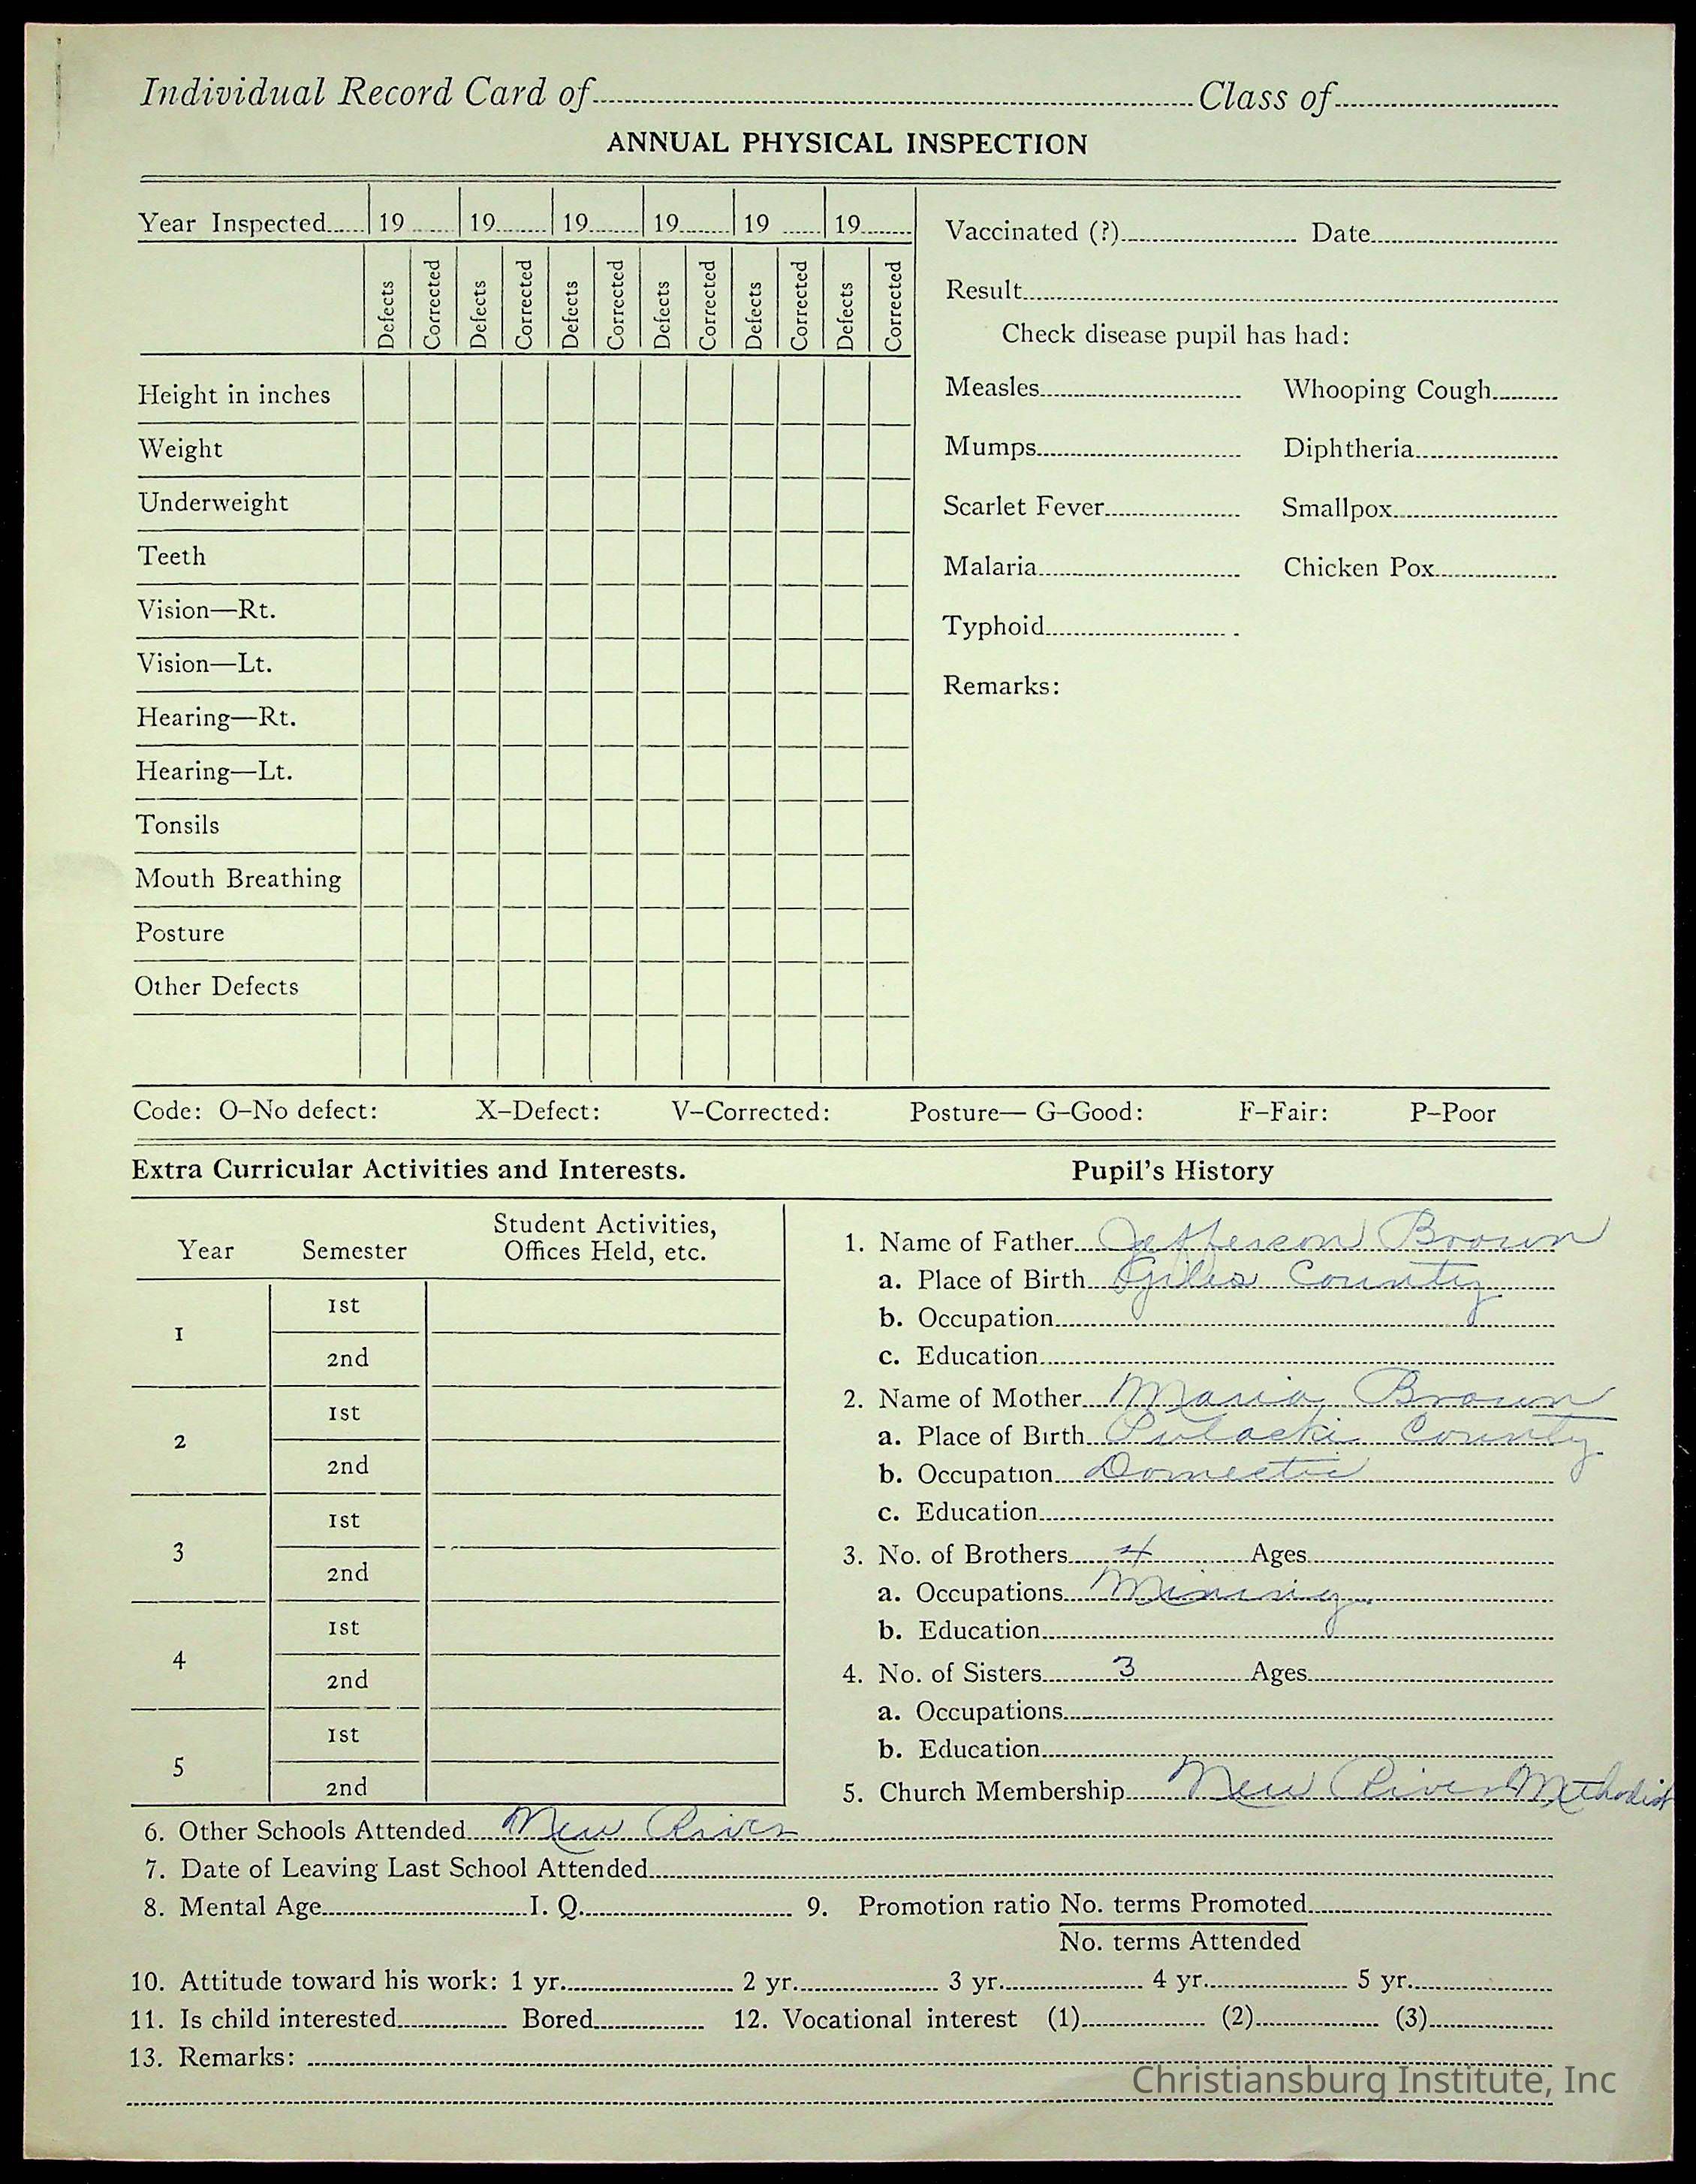 Individual Record Card of Class of
ANNUAL PHYSICAL INSPECTION
Year Inspected 19 19 19 19 19 19
Defects Corrected Defects Corrected Defects Corrected Defects Corrected Defects Corrected Defects Corrected
Height in inches
Weight
Underweight
Teeth
Vision—Rt.
Vision—Lt.
Hearing—Rt.
Hearing—Lt.
Tonsils
Mouth Breathing
Posture
Other Defects
Vaccinated (?) Date
Result
Check disease pupil has had:
Measles Whooping Cough
Mumps Diphtheria
Scarlet Fever Smallpox
Malaria Chicken Pox
Typhoid
Remarks:
Code: O–No defect: X–Defect: V–Corrected: Posture— G–Good: F–Fair: P–Poor
Extra Curricular Activities and Interests.
Year Semester Student Activities, Offices Held, etc.
1 1st
2nd
2 1st
2nd
3 1st
2nd
4 1st
2nd
5 1st
2nd
Pupil's History
1. Name of Father Jefferson Brown
a. Place of Birth Giles County
b. Occupation
c. Education
2. Name of Mother Maria Brown
a. Place of Birth Pulaski County
b. Occupation Domestic
c. Education
3. No. of Brothers 4 Ages
a. Occupations Mining
b. Education
4. No. of Sisters 3 Ages
a. Occupations
b. Education
5. Church Membership New River Methodist
6. Other Schools Attended New River
7. Date of Leaving Last School Attended
8. Mental Age I. Q. 9. Promotion ratio No. terms Promoted
No. terms Attended
10. Attitude toward his work: 1 yr. 2 yr. 3 yr. 4 yr. 5 yr.
11. Is child interested Bored 12. Vocational interest (1) (2) (3)
13. Remarks:
Christiansburg Institute, Inc